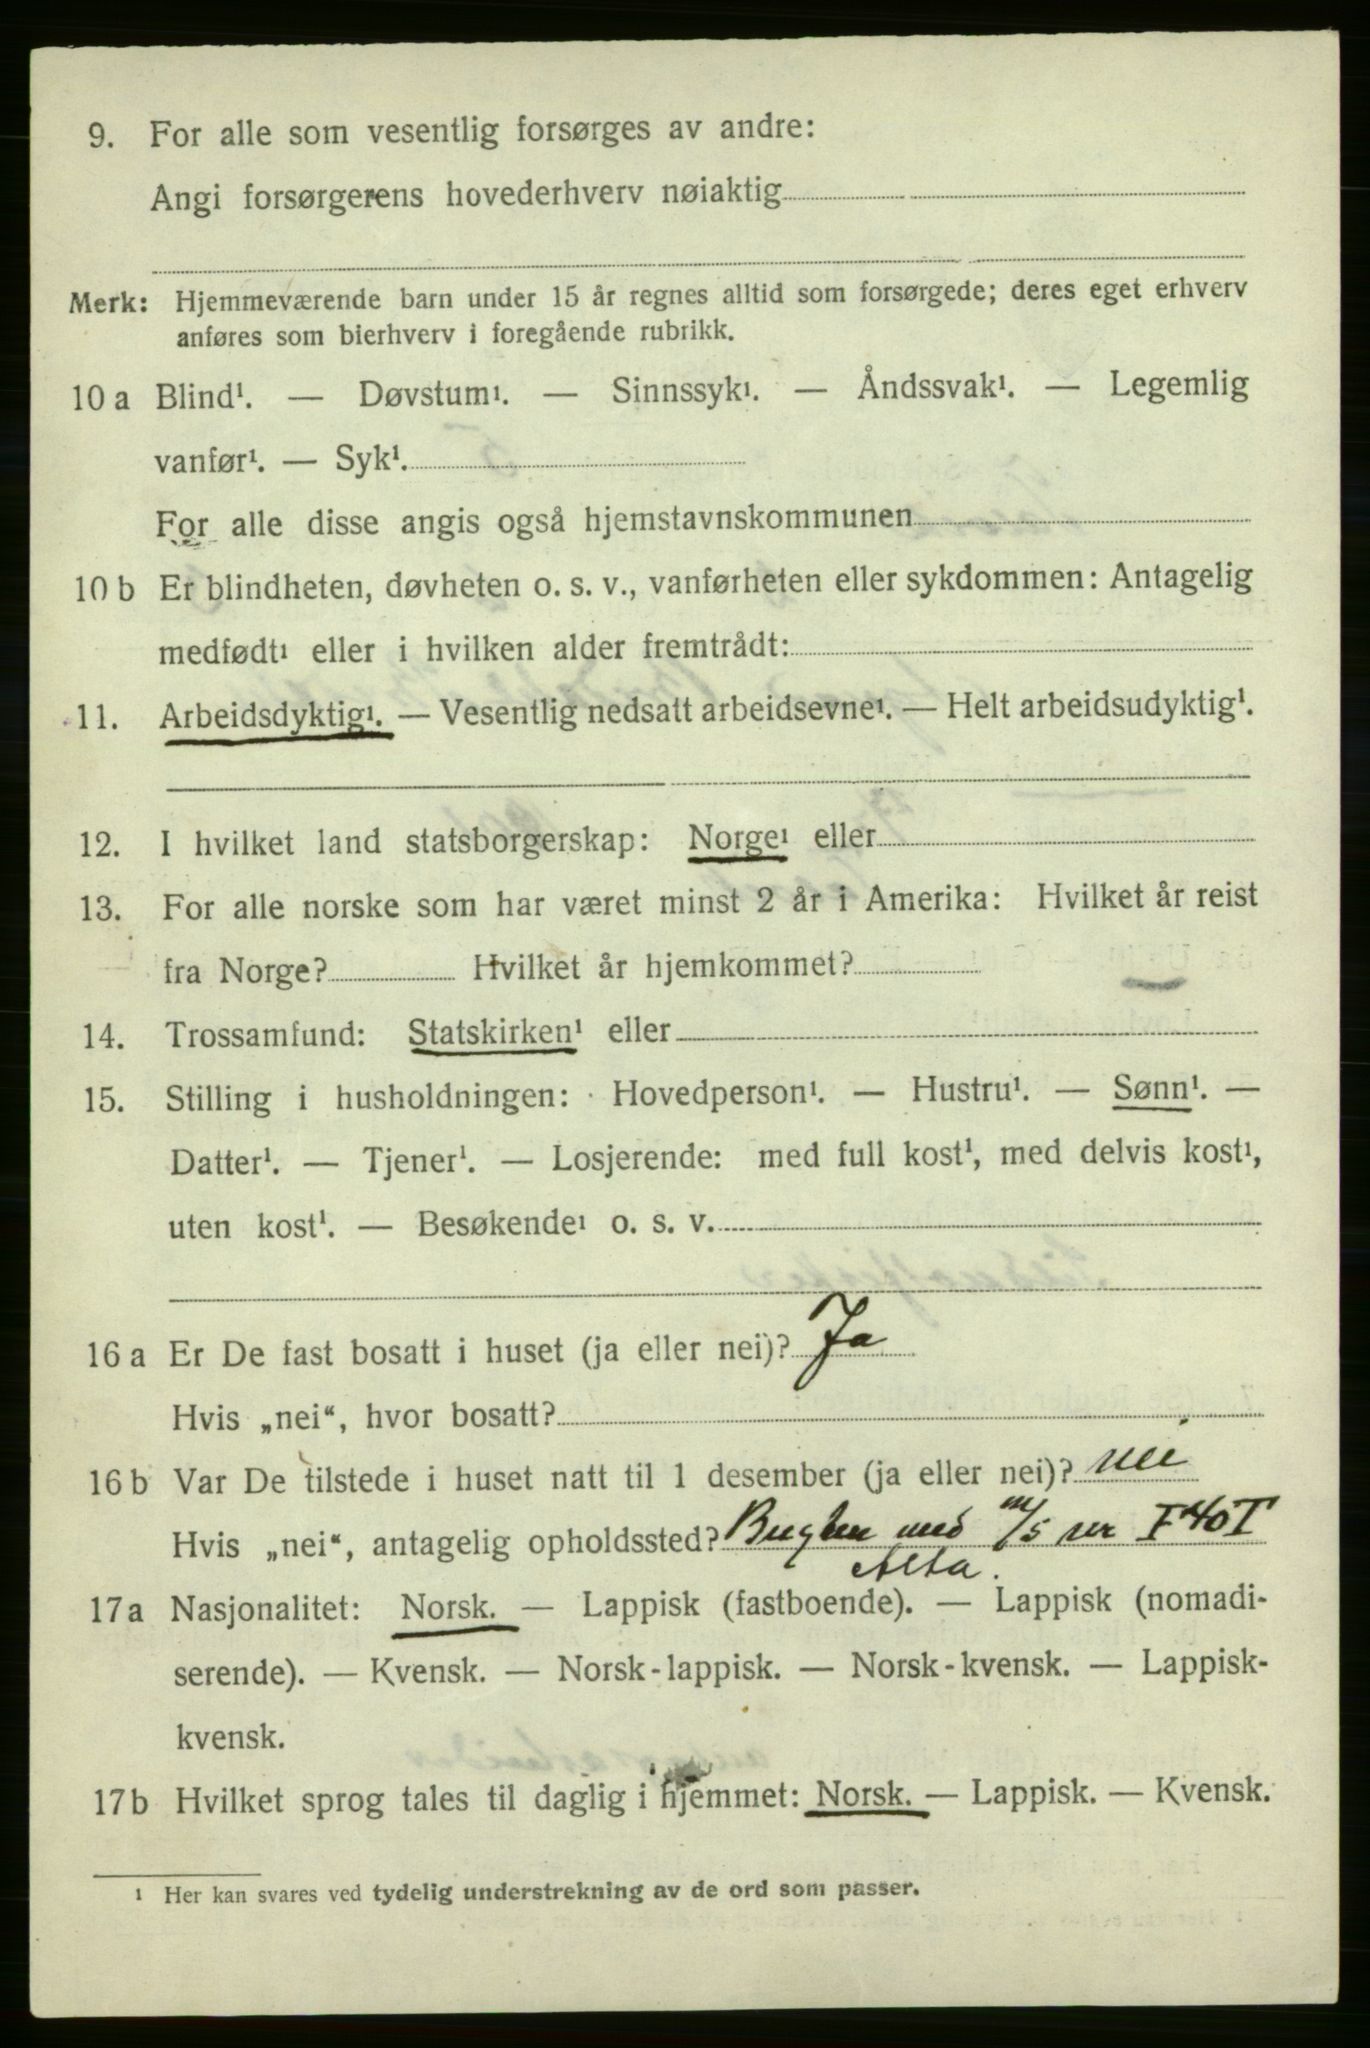 9. For alle som vesentlig forsørges av andre:
Angi forsørgerens hovederhverv nøiaktig
Merk: Hjemmeværende barn under 15 år regnes alltid som forsørgede; deres eget erhverv
anføres som bierhverv i foregående rubrikk.
10 a Blind¹. — Døvstum¹. — Sinnssyk¹. — Åndssvak¹. — Legemlig
vanfør¹. — Syk¹.
For alle disse angis også hjemstavnskommunen
10 b Er blindheten, døvheten o. s. v., vanførheten eller sykdommen: Antagelig
medfødt¹ eller i hvilken alder fremtrådt:
11. Arbeidsdyktig¹. — Vesentlig nedsatt arbeidsevne¹. — Helt arbeidsudyktig¹.
12. I hvilket land statsborgerskap: Norge¹ eller
13. For alle norske som har været minst 2 år i Amerika: Hvilket år reist
fra Norge? Hvilket år hjemkommet?
14. Trossamfund: Statskirken¹ eller
15. Stilling i husholdningen: Hovedperson¹. — Hustru¹. — Sønn¹. —
Datter¹. — Tjener¹. — Losjerende: med full kost¹, med delvis kost¹,
uten kost¹. — Besøkende¹ o. s. v.
16 a Er De fast bosatt i huset (ja eller nei)? Ja
Hvis „nei“, hvor bosatt?
16 b Var De tilstede i huset natt til 1 desember (ja eller nei)? nei
Hvis „nei“, antagelig opholdssted? med m/s nr F 40 T
Alta.
17 a Nasjonalitet: Norsk. — Lappisk (fastboende). — Lappisk (nomadi-
serende). — Kvensk. — Norsk-lappisk. — Norsk-kvensk. — Lappisk-
kvensk.
17 b Hvilket sprog tales til daglig i hjemmet: Norsk. — Lappisk. — Kvensk.
¹ Her kan svares ved tydelig understrekning av de ord som passer.